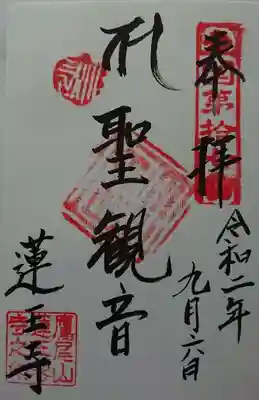 奉拝
令和二年
九月六日
聖観音
蓮王寺